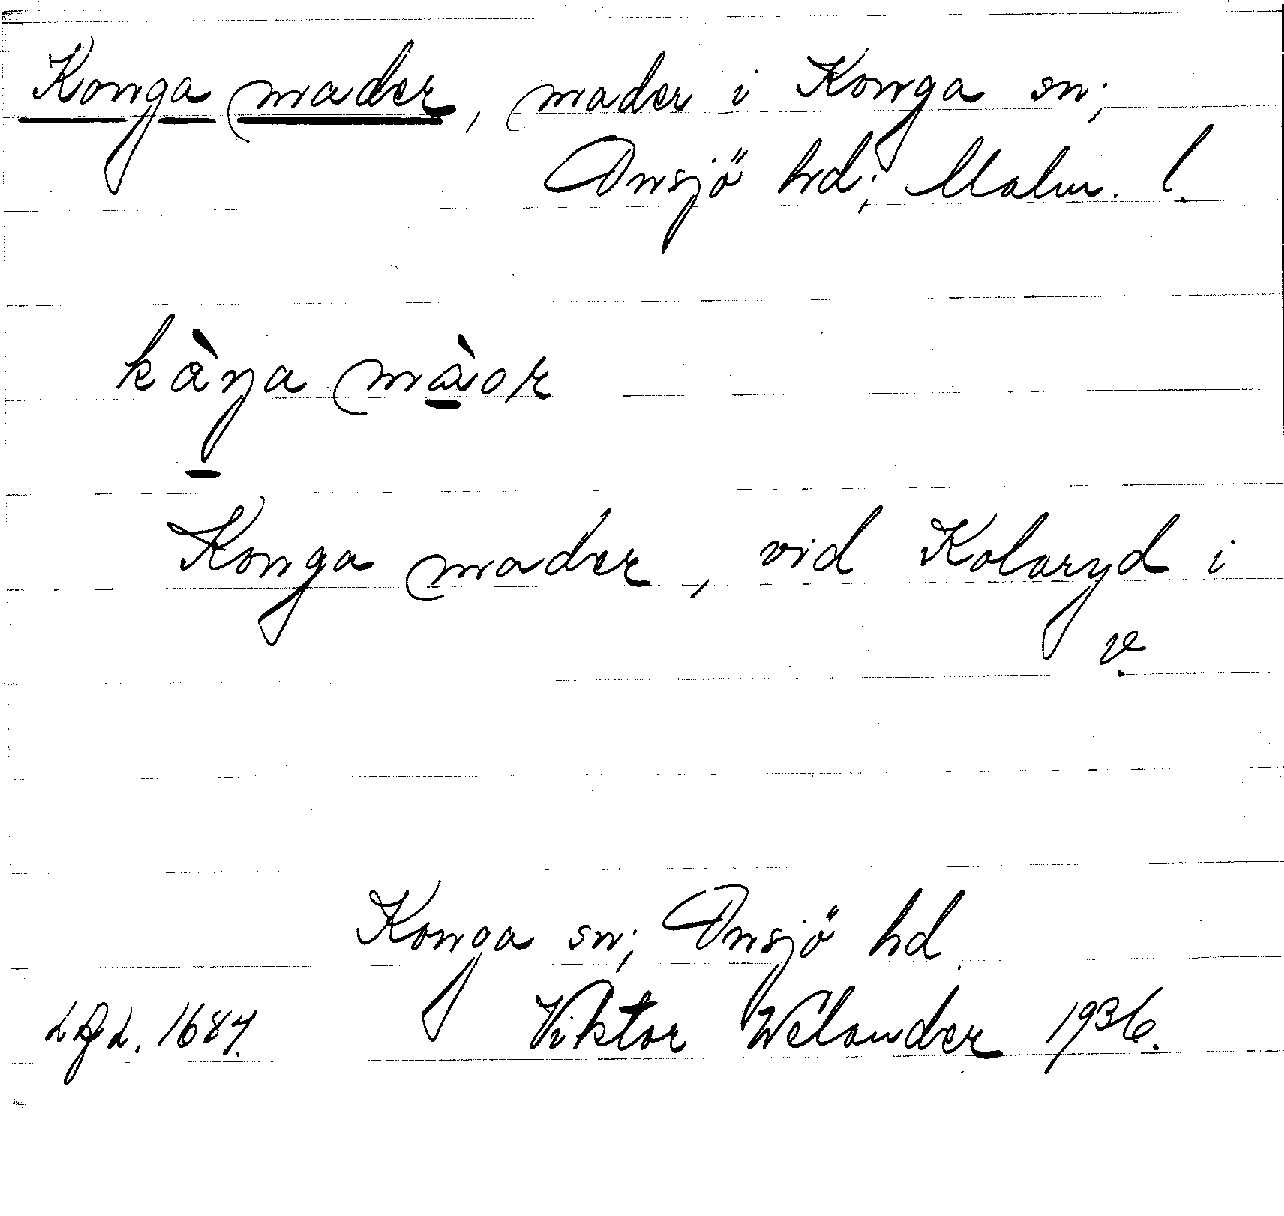 Konga mader, mader i Konga sn;
Onsjö hd; Malm. l.
kàŋa màor
Konga mader, vid Kolaryd i
v.
Konga sn; Onsjö hd
1684. Viktor Welander 1936.